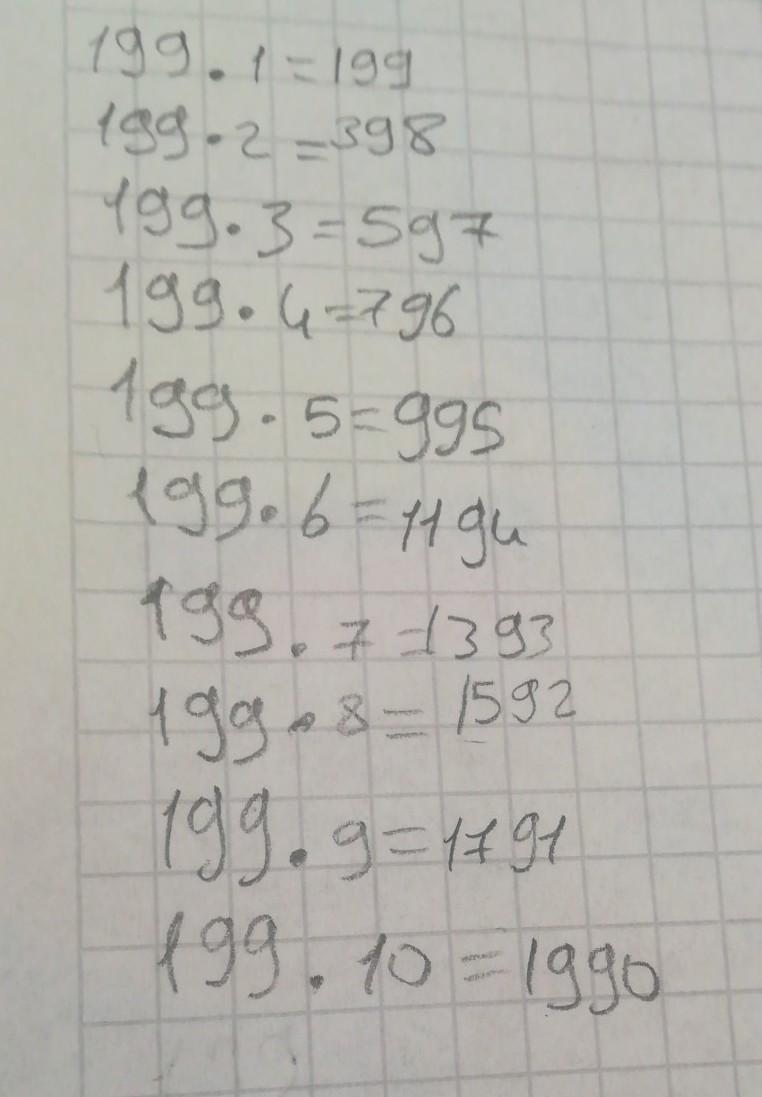 199 · 1 = 199
199 · 2 = 398
199 · 3 = 597
199 · 4 = 796
199 · 5 = 995
199 · 6 = 1194
199 · 7 = 1393
199 · 8 = 1592
199 · 9 = 1791
199 · 10 = 1990